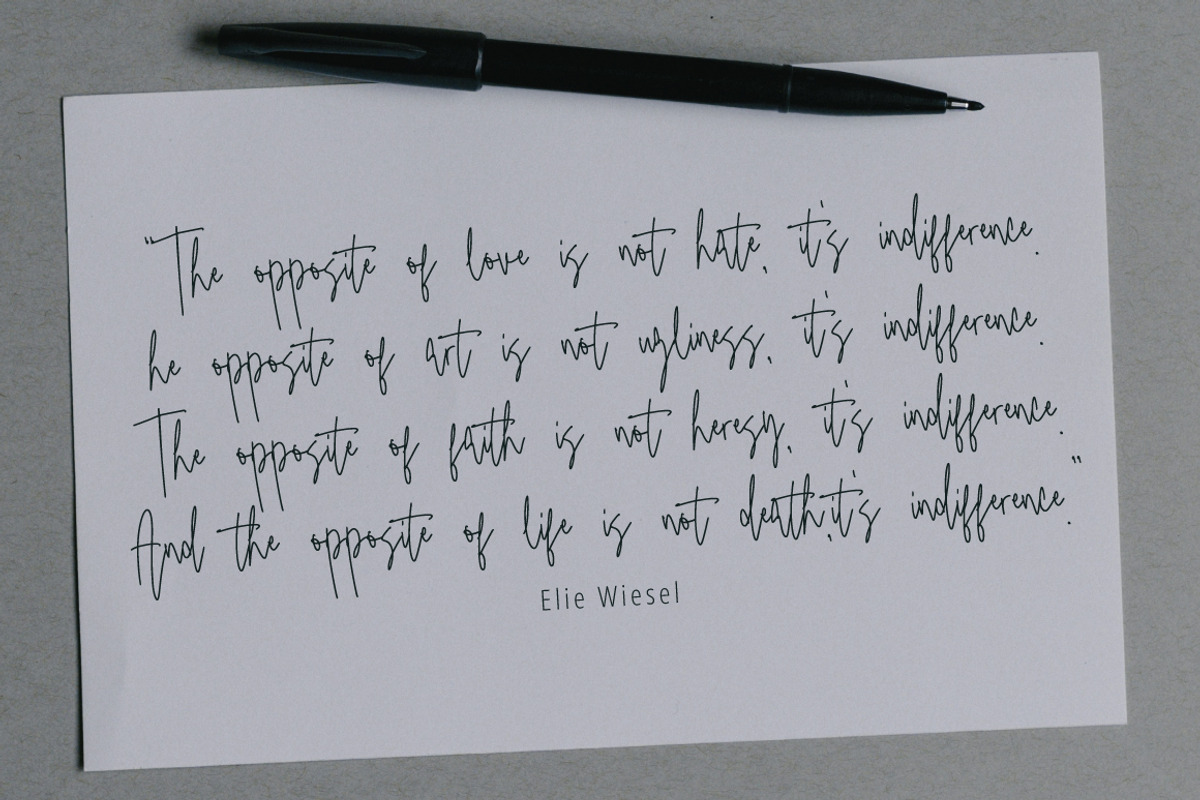 "The opposite of love is not hate, it's indifference.
he opposite of art is not ugliness, it's indifference.
The opposite of faith is not heresy, it's indifference.
And the opposite of life is not death,it's indifference."
Elie Wiesel